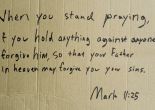 When you stand praying,
if you hold anything against anyone
forgive him, so that your Father
in heaven may forgive you you sins.
Mark 11:25